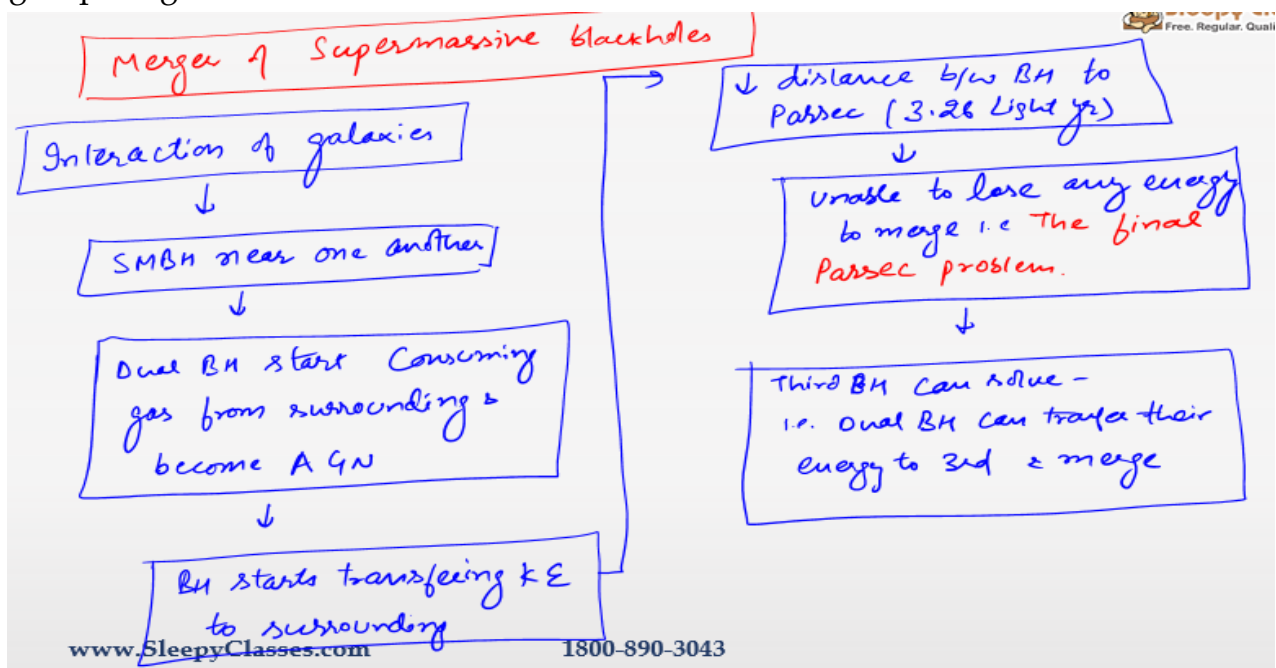 Merger of Supermassive blackholes
Interaction of galaxies
↓
SMBH near one another
↓
Dual BH start Consuming
gas from surrounding &
become AGN
↓
BH starts transfeeing KE
to surrounding
↓ distance b/w BH to
Passec (3.26 Light yr)
↓
Unable to lose any energy
to merge i.e The final
Passec problem.
↓
Third BH can solve -
i.e. Dual BH can tranfer their
energy to 3rd & merge
Free. Regular. Quali
www.SleepyClasses.com 1800-890-3043